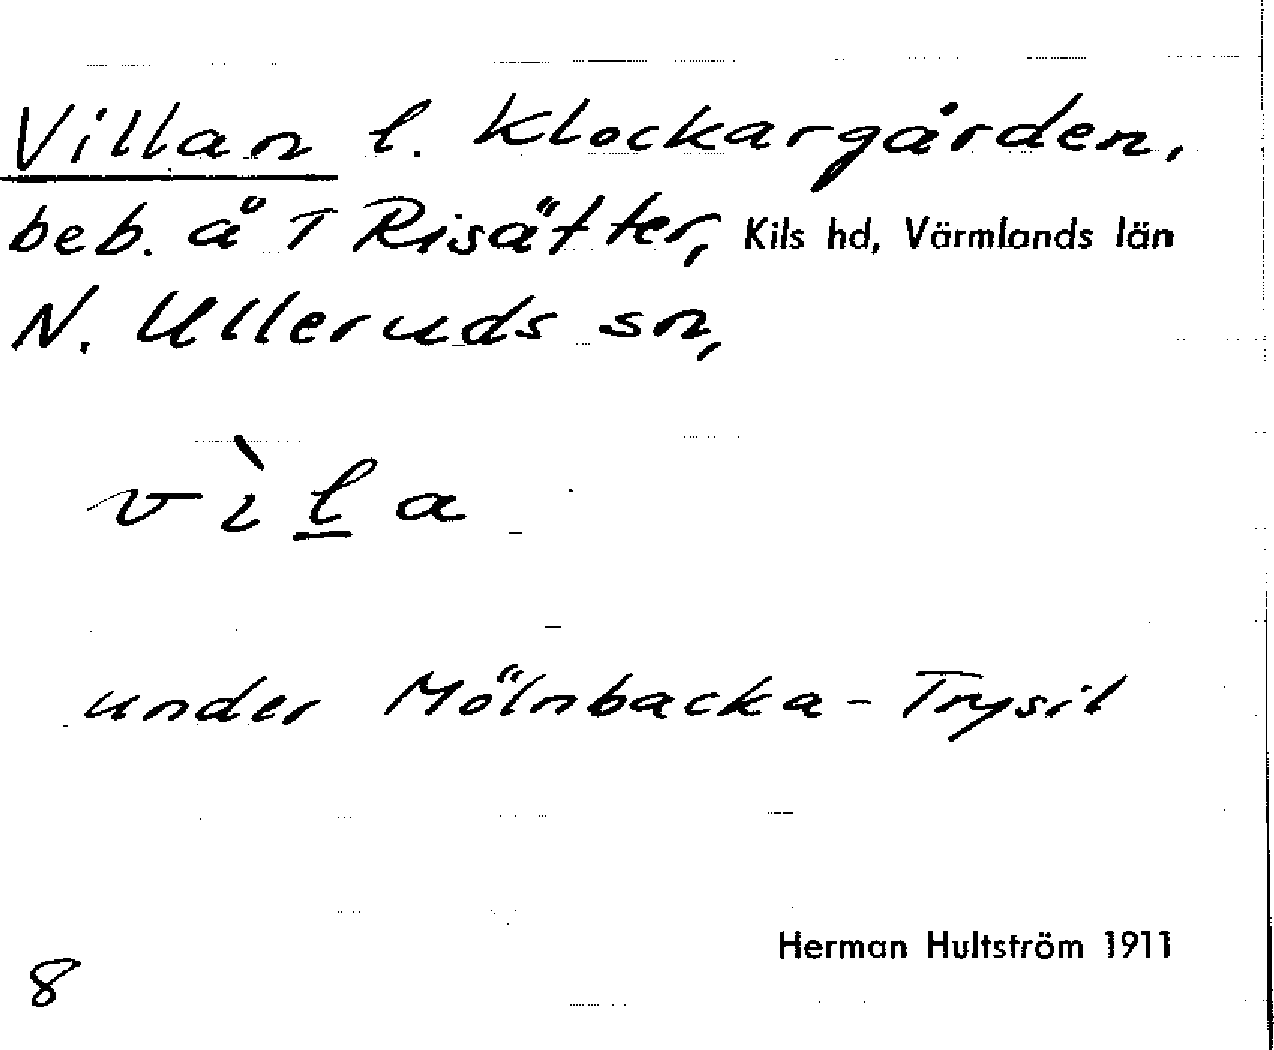 Villan l. Klockargården,
beb. å 1 Risätter, Kils hd, Värmlands län
N. Ulleruds sn,
vìla
under Mölnbacka-Trysil
Herman Hultström 1911
8